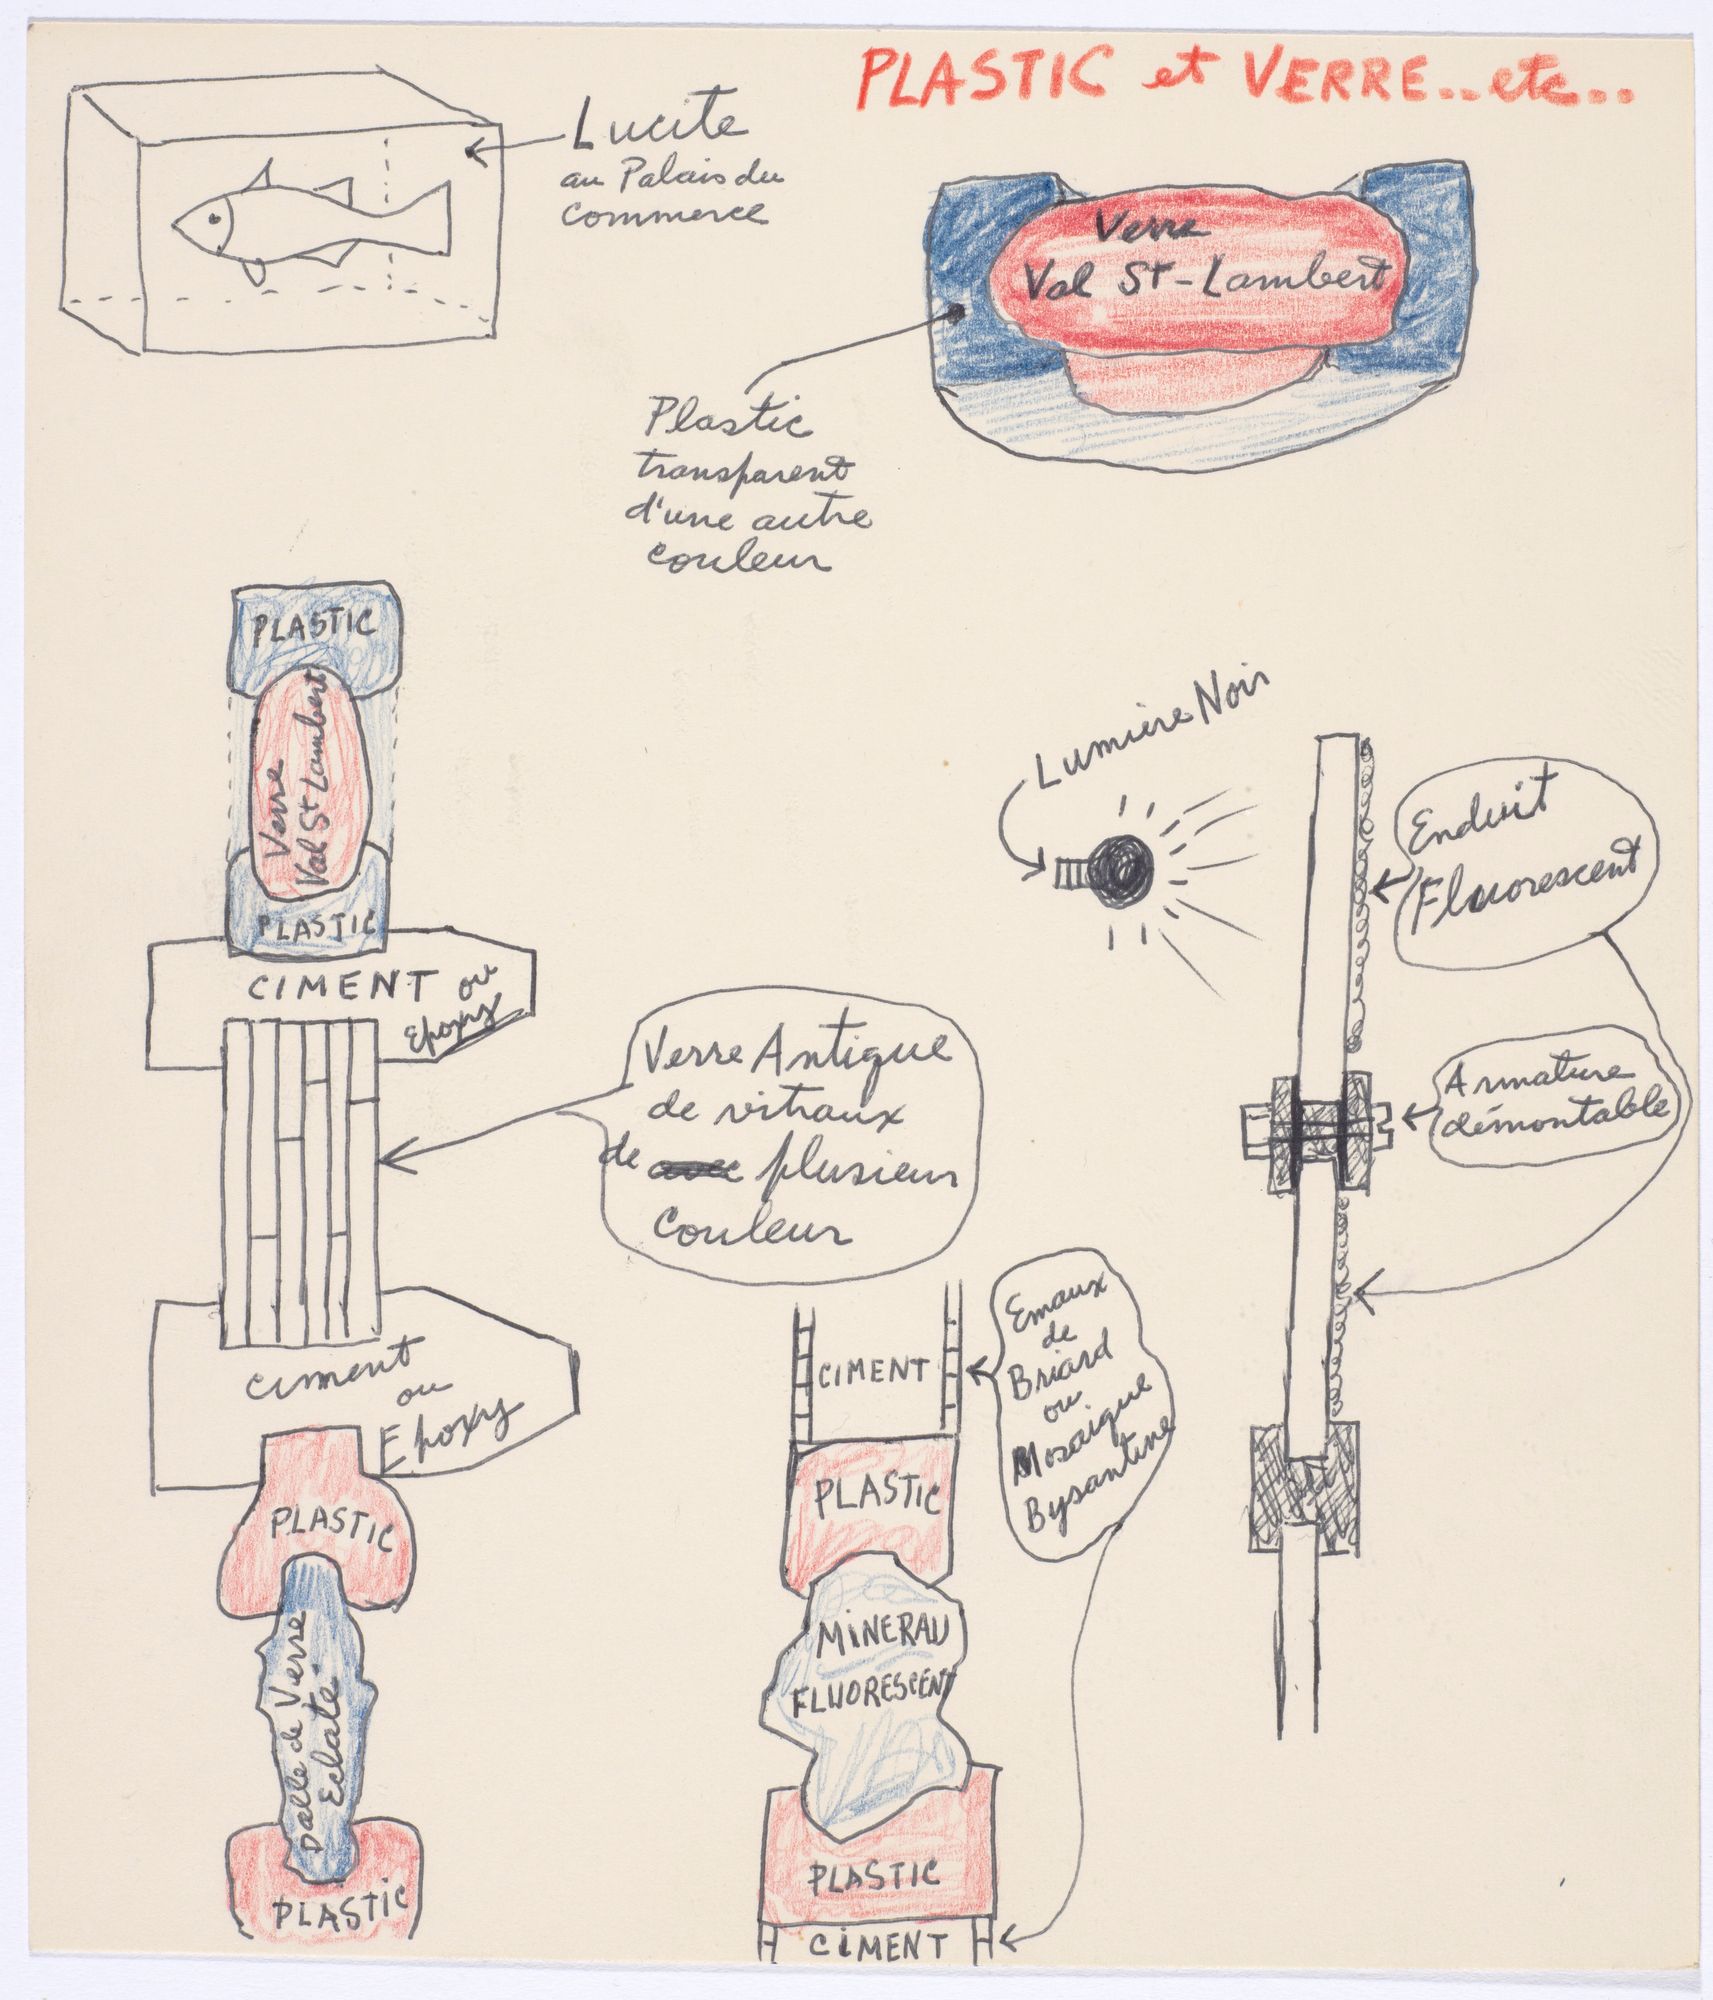 PLASTIC et VERRE..etc...
Lucite
au Palais du
Commerce
Verre
Val St-Lambert
Plastic
transparent
d'une autre
couleur
PLASTIC
Verre
Val St Lambert
PLASTIC
CIMENT ou
Epoxy
Verre Antique
de vitraux
de plusieur
Couleur
Ciment
ou
Epoxy
PLASTIC
Dalle de Verre
Eclaté
PLASTIC
Lumière Noir
Enduit
Fluorescent
Armature
démontable
Emaux
de
Briard
ou
Mosaique
Bysantine
CIMENT
PLASTIC
MINERAU
FLUORESCENT
PLASTIC
CIMENT